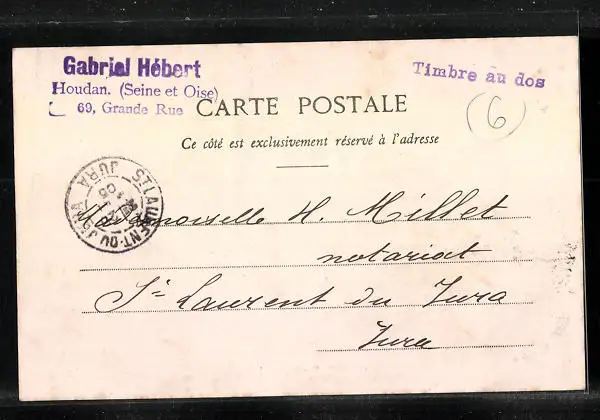 Gabriel Hébert
Houdan. (Seine et Oise)
69, Grande Rue
Timbre au dos
(6)
CARTE POSTALE
Ce côté est exclusivement réservé à l'adresse
ST LAURENT-DU-JURA
JURA
05
Mademoiselle H. Millet
notariat
St Laurent du Jura
Jura